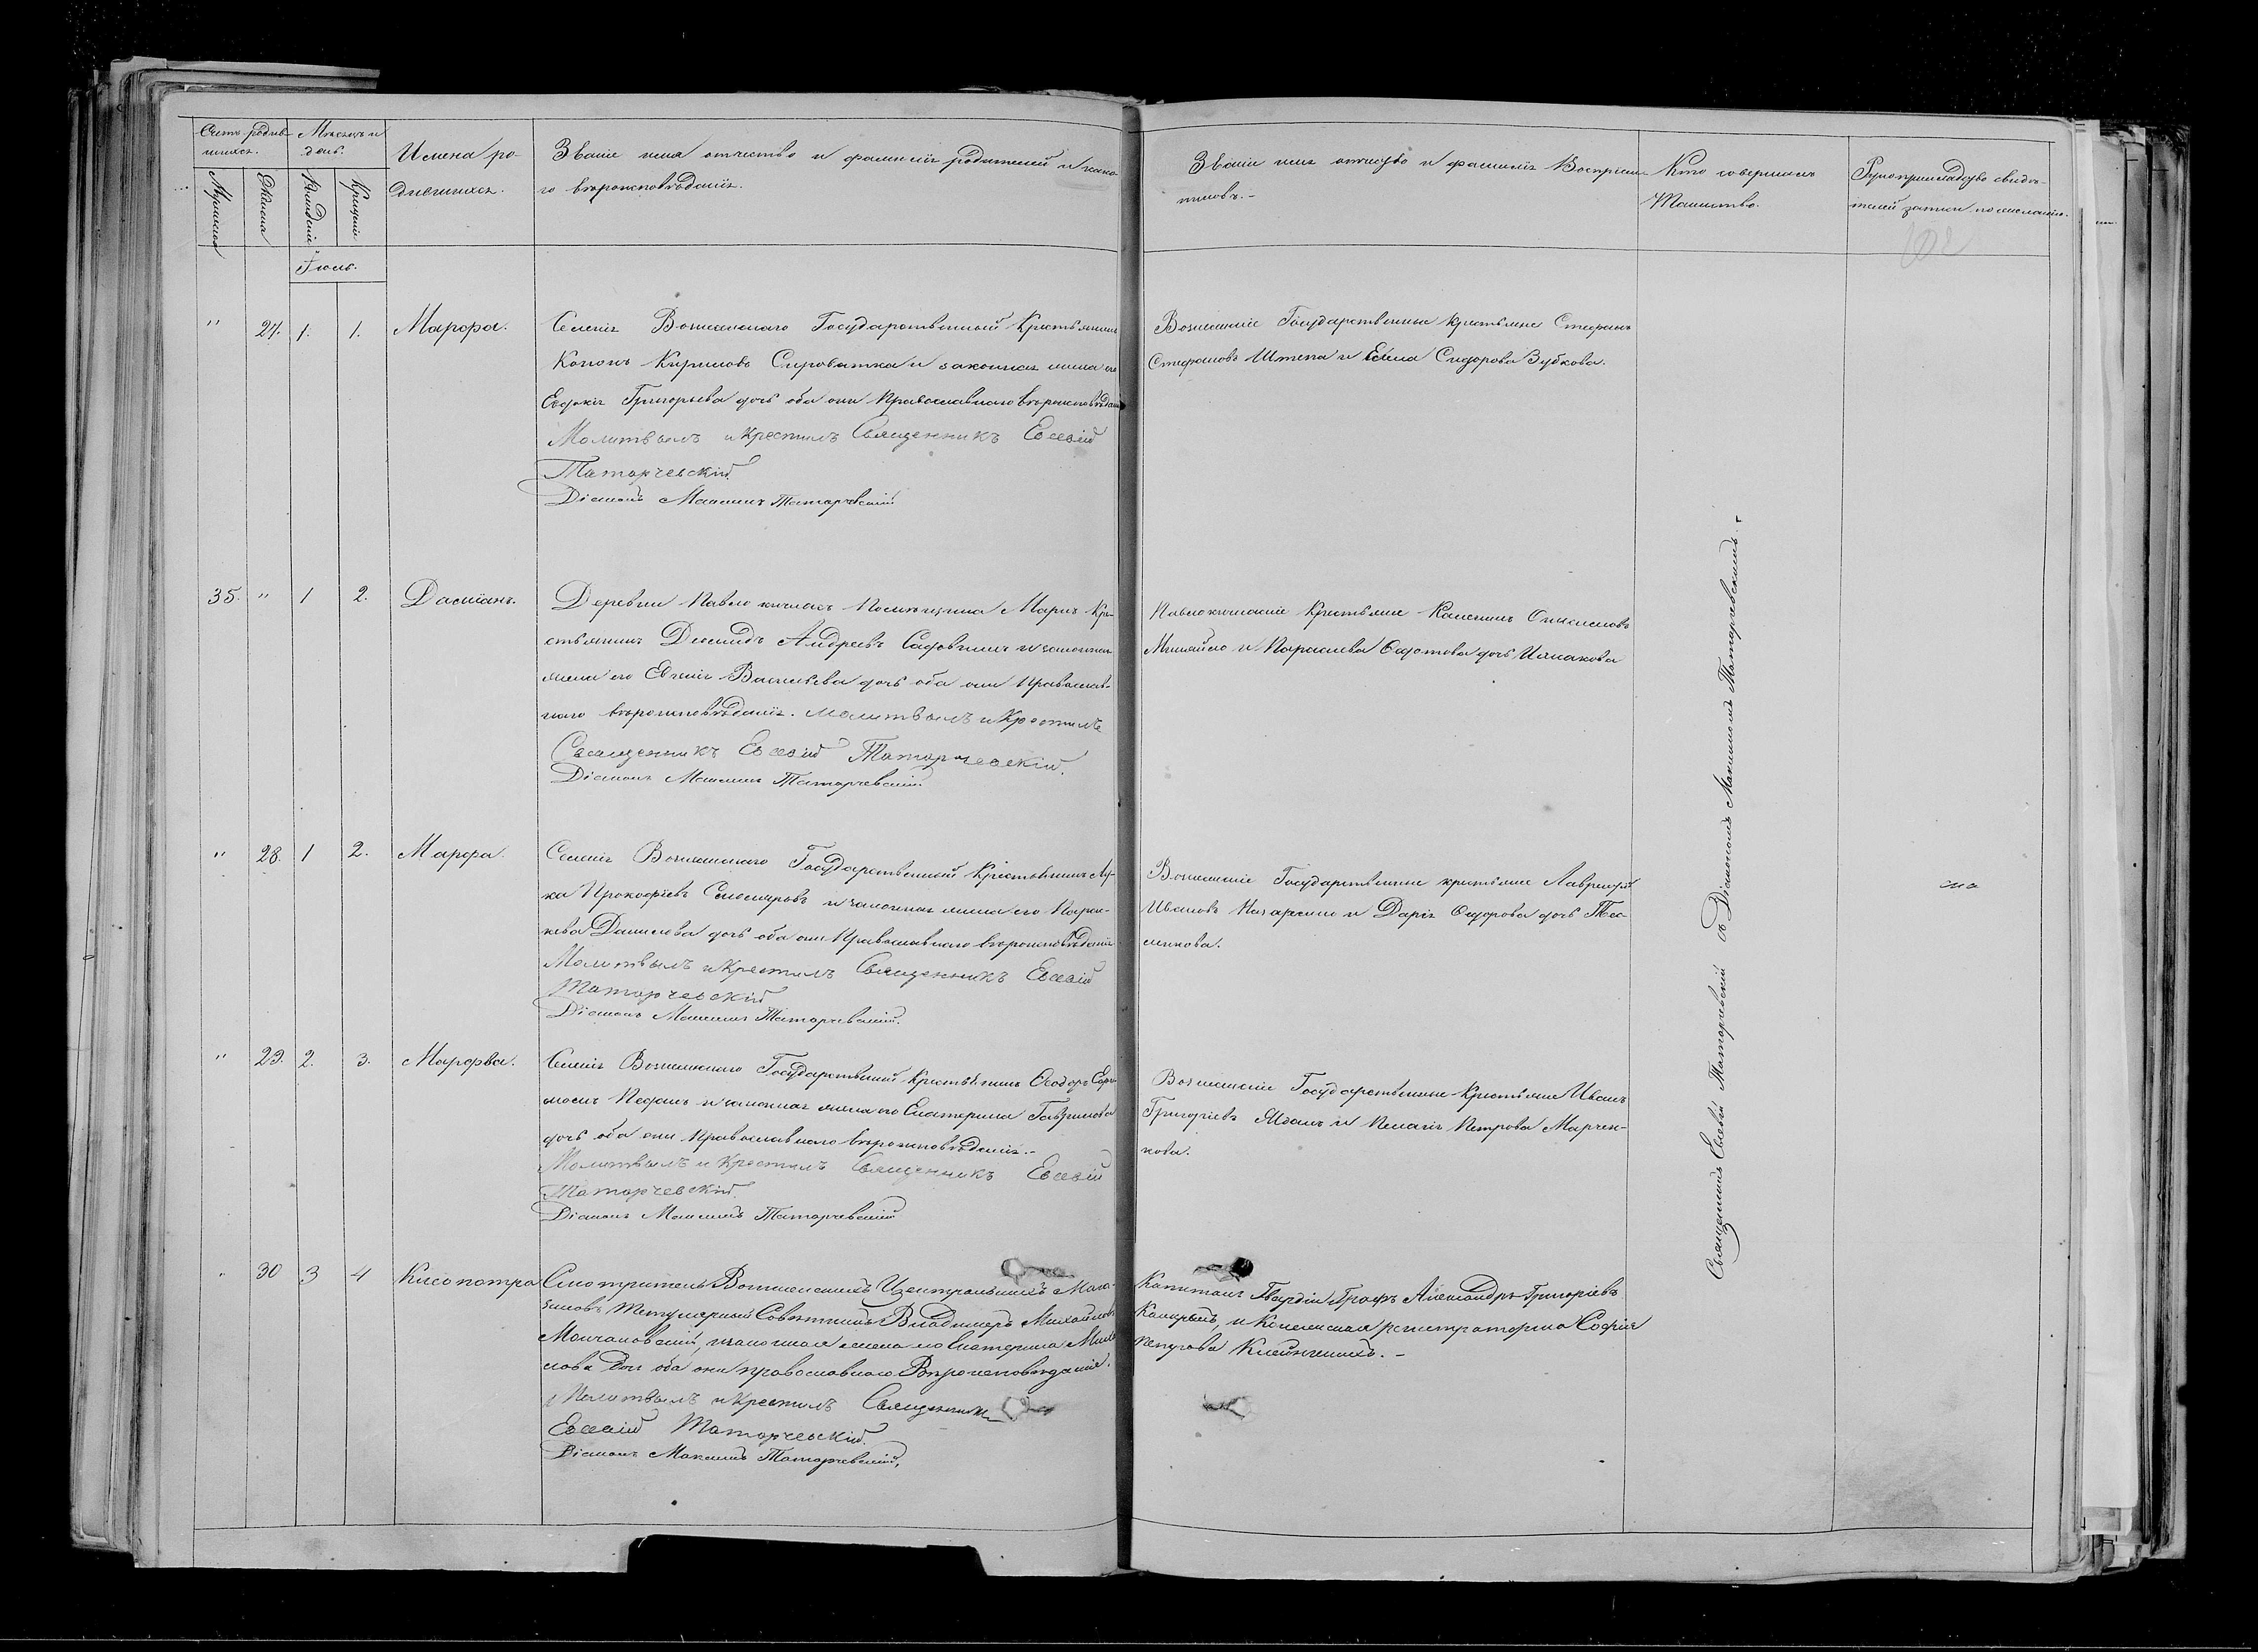 Счетъ родив-
шихся.
Мѣсяцъ и
день.
Имена ро-
дившихся.
Званіе имя отчество и фамилія родителей и како-
го вѣроисповѣданія.
Мужеска
Женска
Рожденія
Крещенія
Іюль.
" 27. 1. 1. Марфа.
Селенія Вознесенскаго Государственный Крестьянинъ
Кононъ Кириловъ Сыроватка и законная жена его
Евдокія Григорьева дочь оба они Православнаго вѣроисповѣданія
Молитвилъ и Крестилъ Священникъ Евсевій
Татарчевскій
Діаконъ Максимъ Татарчевскій
35. " 1 2. Даміанъ.
Деревни Павло Помѣщика Кре-
стьянинъ Андреевъ и законная
жена его Евгенія Васильева дочь оба они Православ-
наго вѣроисповѣданія. Молитвилъ и Крестилъ
Священникъ Евсевій Татарчевскій.
Діаконъ Максимъ Татарчевскій.
" 28. 1 2. Марфа.
Селенія Вознесенскаго Государственный Крестьянинъ Лу-
ка Прокофіевъ и законная жена его Парас-
кева Данилова дочь оба они Православнаго вѣроисповѣданія
Молитвилъ и Крестилъ Священникъ Евсевій
Татарчевскій
Діаконъ Максимъ Татарчевскій.
" 29. 2. 3. Марфва.
Селенія Вознесенскаго Государственный Крестьянинъ Ѳеодоръ
и законная жена его Екатерина Гаврилова
дочь оба они Православнаго вѣроисповѣданія.-
Молитвилъ и Крестилъ Священникъ Евсевій
Татарчевскій.
Діаконъ Максимъ Татарчевскій
" 30 3 4 Клеопатра
Смотритель Вознесенскихъ Центральныхъ Мага-
зиновъ Титулярный Совѣтникъ Владимеръ Михайловъ
Молчановскій, и законная жена его Екатерина
дочь оба они православнаго Вѣроисповѣданія.
Молитвилъ и Крестилъ Священникъ
Евсевій Татарчевскій.
Діаконъ Максимъ Татарчевскій,
Званіе имя отчество и фамилія Воспріем-
никовъ.-
Кто совершалъ
Таинство.
Рукоприкладство свидѣ-
телей записи по желанію.
102
Вознесенскіе Государственные крестьяне Стефанъ
Стефановъ Штепа и Елена Сидорова Зубкова.
Крестьяне
и Параскева Ѳедотова дочь
Вознесенскіе Государственные крестьяне Лаврентій
Ивановъ Назаренко и Дарія Сидорова дочь Тес-
ленкова.
Вознесенскіе Государственные Крестьяне Иванъ
Григоріевъ и Пелагія Петрова Марчен-
кова.
Капитанъ Гвардіи Графъ Александръ Григоріевъ
и Колежская регистраторша Софія
Петрова
Священникъ Евсевій Татарчевскій съ Діакономъ Максимомъ Татарчевскимъ.-